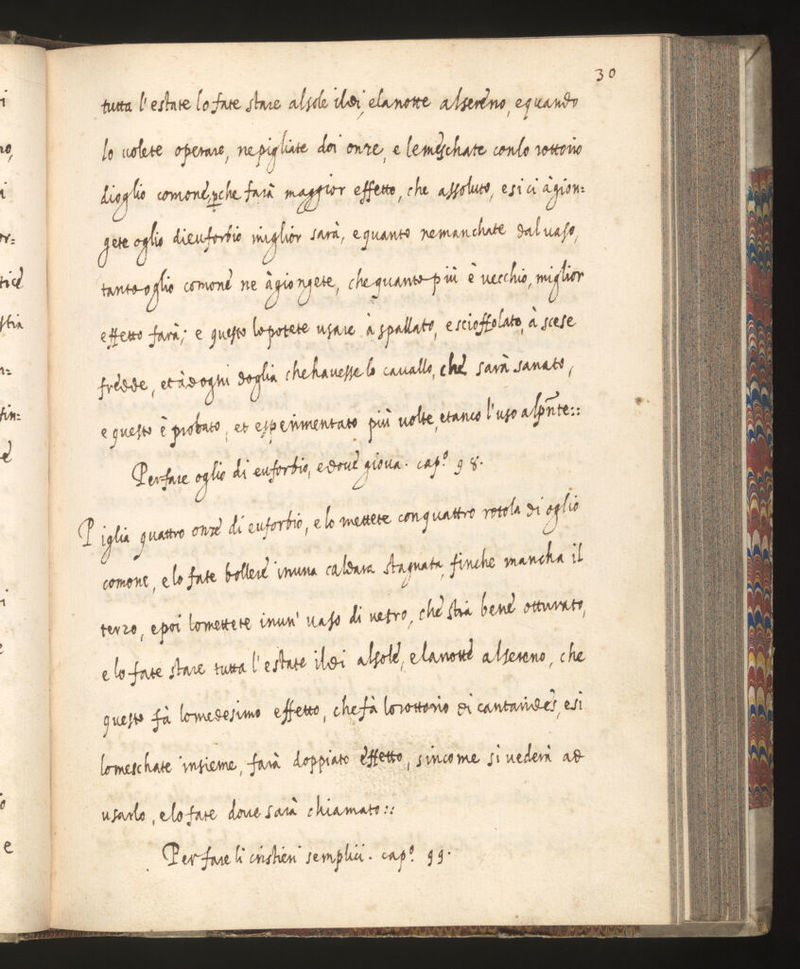 30
tutta l'estate lo fate stare al sole il di, e la notte al sereno, e quando
lo uolete operare, ne pigliate doi onze, e lemeschate con lo rottorio
dioglio comone, che farà maggior effetto, che assoluto, e si ci àgion=
gete oglio dieuforbio miglior sarà, e quanto ne manchate dal uaso,
tanto oglio comone ne àgiongete, che quanto più è uecchio, miglior
effetto farà; e questo lo potete usare à spallato, e scioffolato, à scese
fredde, et àdogni doglia che hauesse lo cauallo, che sarà sanato,
e questo è probato, et esperimentato più uolte, etanco l'uso alpnte::
Per fare oglio di euforbio, e doue gioua. capo. 98.
Piglia quattro onze di euforbio, e lo mettete con quattro rotola di oglio
comone, e lo fate bollere in una caldara stagnata, finche mancha il
terzo, e poi lo mettete in un' uaso di uetro, che stia bene otturato,
e lo fate stare tutta l'estate il di al sole, e la notte al sereno, che
questo fà lo medesimo effetto, che fà lo rottorio di cantarides, e si
lo meschate insieme, farà doppiato effetto, sincome si uederà ad
usarlo, e lo fate doue sarà chiamato::
Per fare li cristieri semplici. capo. 99.
i
no,
i
or=
tice
stia
n=
fin=
e
i
o
e